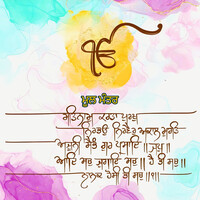 ੴ
ਮੂਲ ਮੰਤਰ
ਸਤਿਨਾਮੁ ਕਰਤਾ ਪੁਰਖੁ
ਨਿਰਭਉ ਨਿਰਵੈਰ ਅਕਾਲ ਮੂਰਤਿ
ਅਜੂਨੀ ਸੈਭੰ ਗੁਰ ਪ੍ਰਸਾਦਿ ॥ ਜਪੁ ॥
ਆਦਿ ਸਚੁ ਜੁਗਾਦਿ ਸਚੁ ॥ ਹੈ ਭੀ ਸਚੁ ॥
ਨਾਨਕ ਹੋਸੀ ਭੀ ਸਚੁ ॥੧॥